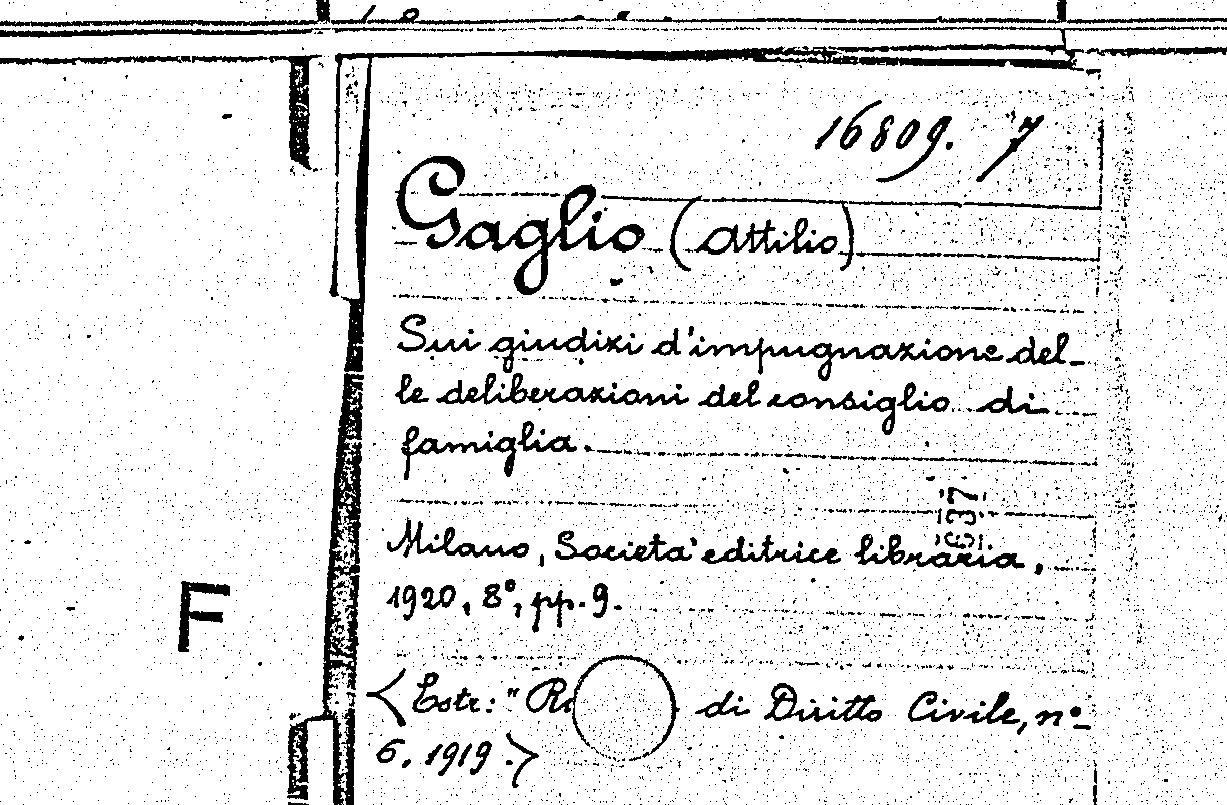 16809. 7
Gaglio (Attilio)
Sui giudizi d'impugnazione del-
le deliberazioni del consiglio di
famiglia.
637
Milano, Società editrice libraria,
1920, 8°, pp. 9.
F
<Estr: " di Diritto Civile, n°
6. 1919.>